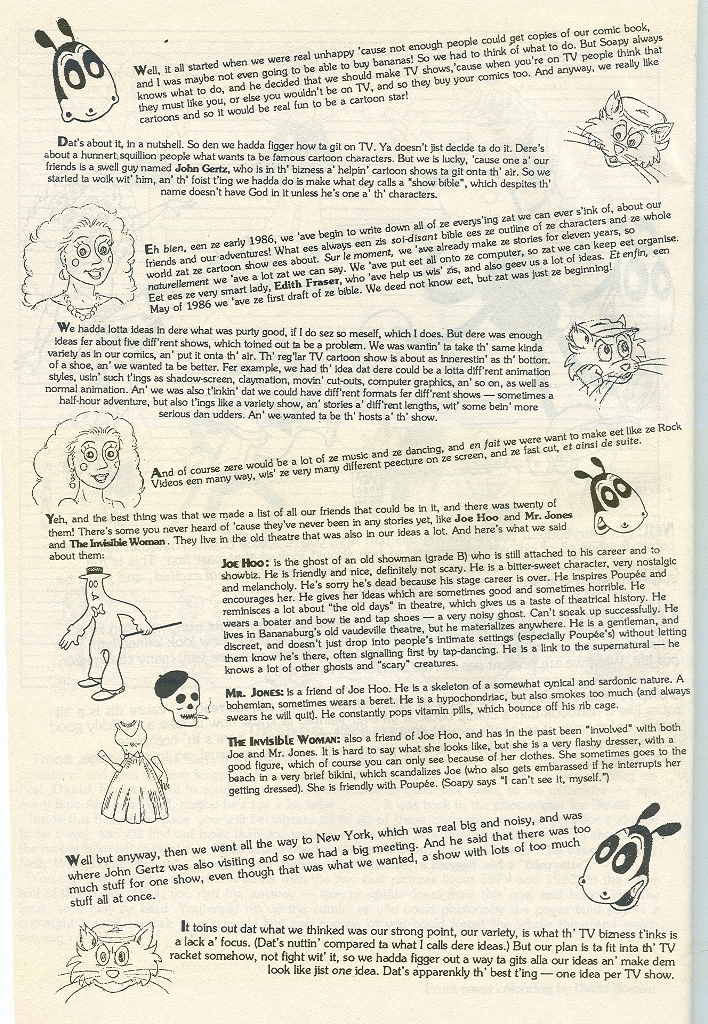 Well, it all started when we were real unhappy 'cause not enough people could get copies of our comic book,
and I was maybe not even going to be able to buy bananas! So we had to think of what to do. But Soapy always
knows what to do, and he decided that we should make TV shows,'cause when you're on TV people think that
they must like you, or else you wouldn't be on TV, and so they buy your comics too. And anyway, we really like
cartoons and so it would be real fun to be a cartoon star!
Dat's about it, in a nutshell. So den we hadda figger how ta git on TV. Ya doesn't jist decide ta do it. Dere's
about a hunnert squillion people what wants ta be famous cartoon characters. But we is lucky, 'cause one a' our
friends is a swell guy named John Gertz, who is in th' bizness a' helpin' cartoon shows ta git onta th' air. So we
started ta woik wit' him, an' th' foist t'ing we hadda do is make what dey calls a "show bible", which despites th'
name doesn't have God in it unless he's one a' th' characters.
Eh bien, een ze early 1986, we 'ave begin to write down all of ze everys'ing zat we can ever s'ink of, about our
friends and our adventures! What ees always een zis soi-disant bible ees ze outline of ze characters and ze whole
world zat ze cartoon show ees about. Sur le moment, we 'ave already make ze stories for eleven years, so
naturellement we 'ave a lot zat we can say. We 'ave put eet all onto ze computer, so zat we can keep eet organise.
Eet ees ze very smart lady, Edith Fraser, who 'ave help us wis' zis, and also geev us a lot of ideas. Et enfin, een
May of 1986 we 'ave ze first draft of ze bible. We deed not know eet, but zat was just ze beginning!
We hadda lotta ideas in dere what was purty good, if I do sez so meself, which I does. But dere was enough
ideas fer about five diff'rent shows, which toined out ta be a problem. We was wantin' ta take th' same kinda
variety as in our comics, an' put it onta th' air. Th' reg'lar TV cartoon show is about as innerestin' as th' bottom
of a shoe, an' we wanted ta be better. Fer example, we had th' idea dat dere could be a lotta diff'rent animation
styles, usin' such t'ings as shadow-screen, claymation, movin' cut-outs, computer graphics, an' so on, as well as
normal animation. An' we was also t'inkin' dat we could have diff'rent formats fer diff'rent shows — sometimes a
half-hour adventure, but also t'ings like a variety show, an' stories a' diff'rent lengths, wit' some bein' more
serious dan udders. An' we wanted ta be th' hosts a' th' show.
And of course zere would be a lot of ze music and ze dancing, and en fait we were want to make eet like ze Rock
Videos een many way, wis' ze very many different peecture on ze screen, and ze fast cut, et ainsi de suite.
Yeh, and the best thing was that we made a list of all our friends that could be in it, and there was twenty of
them! There's some you never heard of 'cause they've never been in any stories yet, like Joe Hoo and Mr. Jones
and The Invisible Woman. They live in the old theatre that was also in our ideas a lot. And here's what we said
about them:
Joe Hoo: is the ghost of an old showman (grade B) who is still attached to his career and to
showbiz. He is friendly and nice, definitely not scary. He is a bitter-sweet character, very nostalgic
and melancholy. He's sorry he's dead because his stage career is over. He inspires Poupée and
encourages her. He gives her ideas which are sometimes good and sometimes horrible. He
reminisces a lot about "the old days" in theatre, which gives us a taste of theatrical history. He
wears a boater and bow tie and tap shoes — a very noisy ghost. Can't sneak up successfully. He
lives in Bananaburg's old vaudeville theatre, but he materializes anywhere. He is a gentleman, and
discreet, and doesn't just drop into people's intimate settings (especially Poupée's) without letting
them know he's there, often signalling first by tap-dancing. He is a link to the supernatural — he
knows a lot of other ghosts and "scary" creatures.
Mr. Jones: is a friend of Joe Hoo. He is a skeleton of a somewhat cynical and sardonic nature. A
bohemian, sometimes wears a beret. He is a hypochondriac, but also smokes too much (and always
swears he will quit). He constantly pops vitamin pills, which bounce off his rib cage.
The Invisible Woman: also a friend of Joe Hoo, and has in the past been "involved" with both
Joe and Mr. Jones. It is hard to say what she looks like, but she is a very flashy dresser, with a
good figure, which of course you can only see because of her clothes. She sometimes goes to the
beach in a very brief bikini, which scandalizes Joe (who also gets embarassed if he interrupts her
getting dressed). She is friendly with Poupée. (Soapy says "I can't see it, myself.")
Well but anyway, then we went all the way to New York, which was real big and noisy, and was
where John Gertz was also visiting and so we had a big meeting. And he said that there was too
much stuff for one show, even though that was what we wanted, a show with lots of too much
stuff all at once.
It toins out dat what we thinked was our strong point, our variety, is what th' TV bizness t'inks is
a lack a' focus. (Dat's nuttin' compared ta what I calls dere ideas.) But our plan is ta fit inta th' TV
racket somehow, not fight wit' it, so we hadda figger out a way ta gits alla our ideas an' make dem
look like jist one idea. Dat's apparenkly th' best t'ing — one idea per TV show.